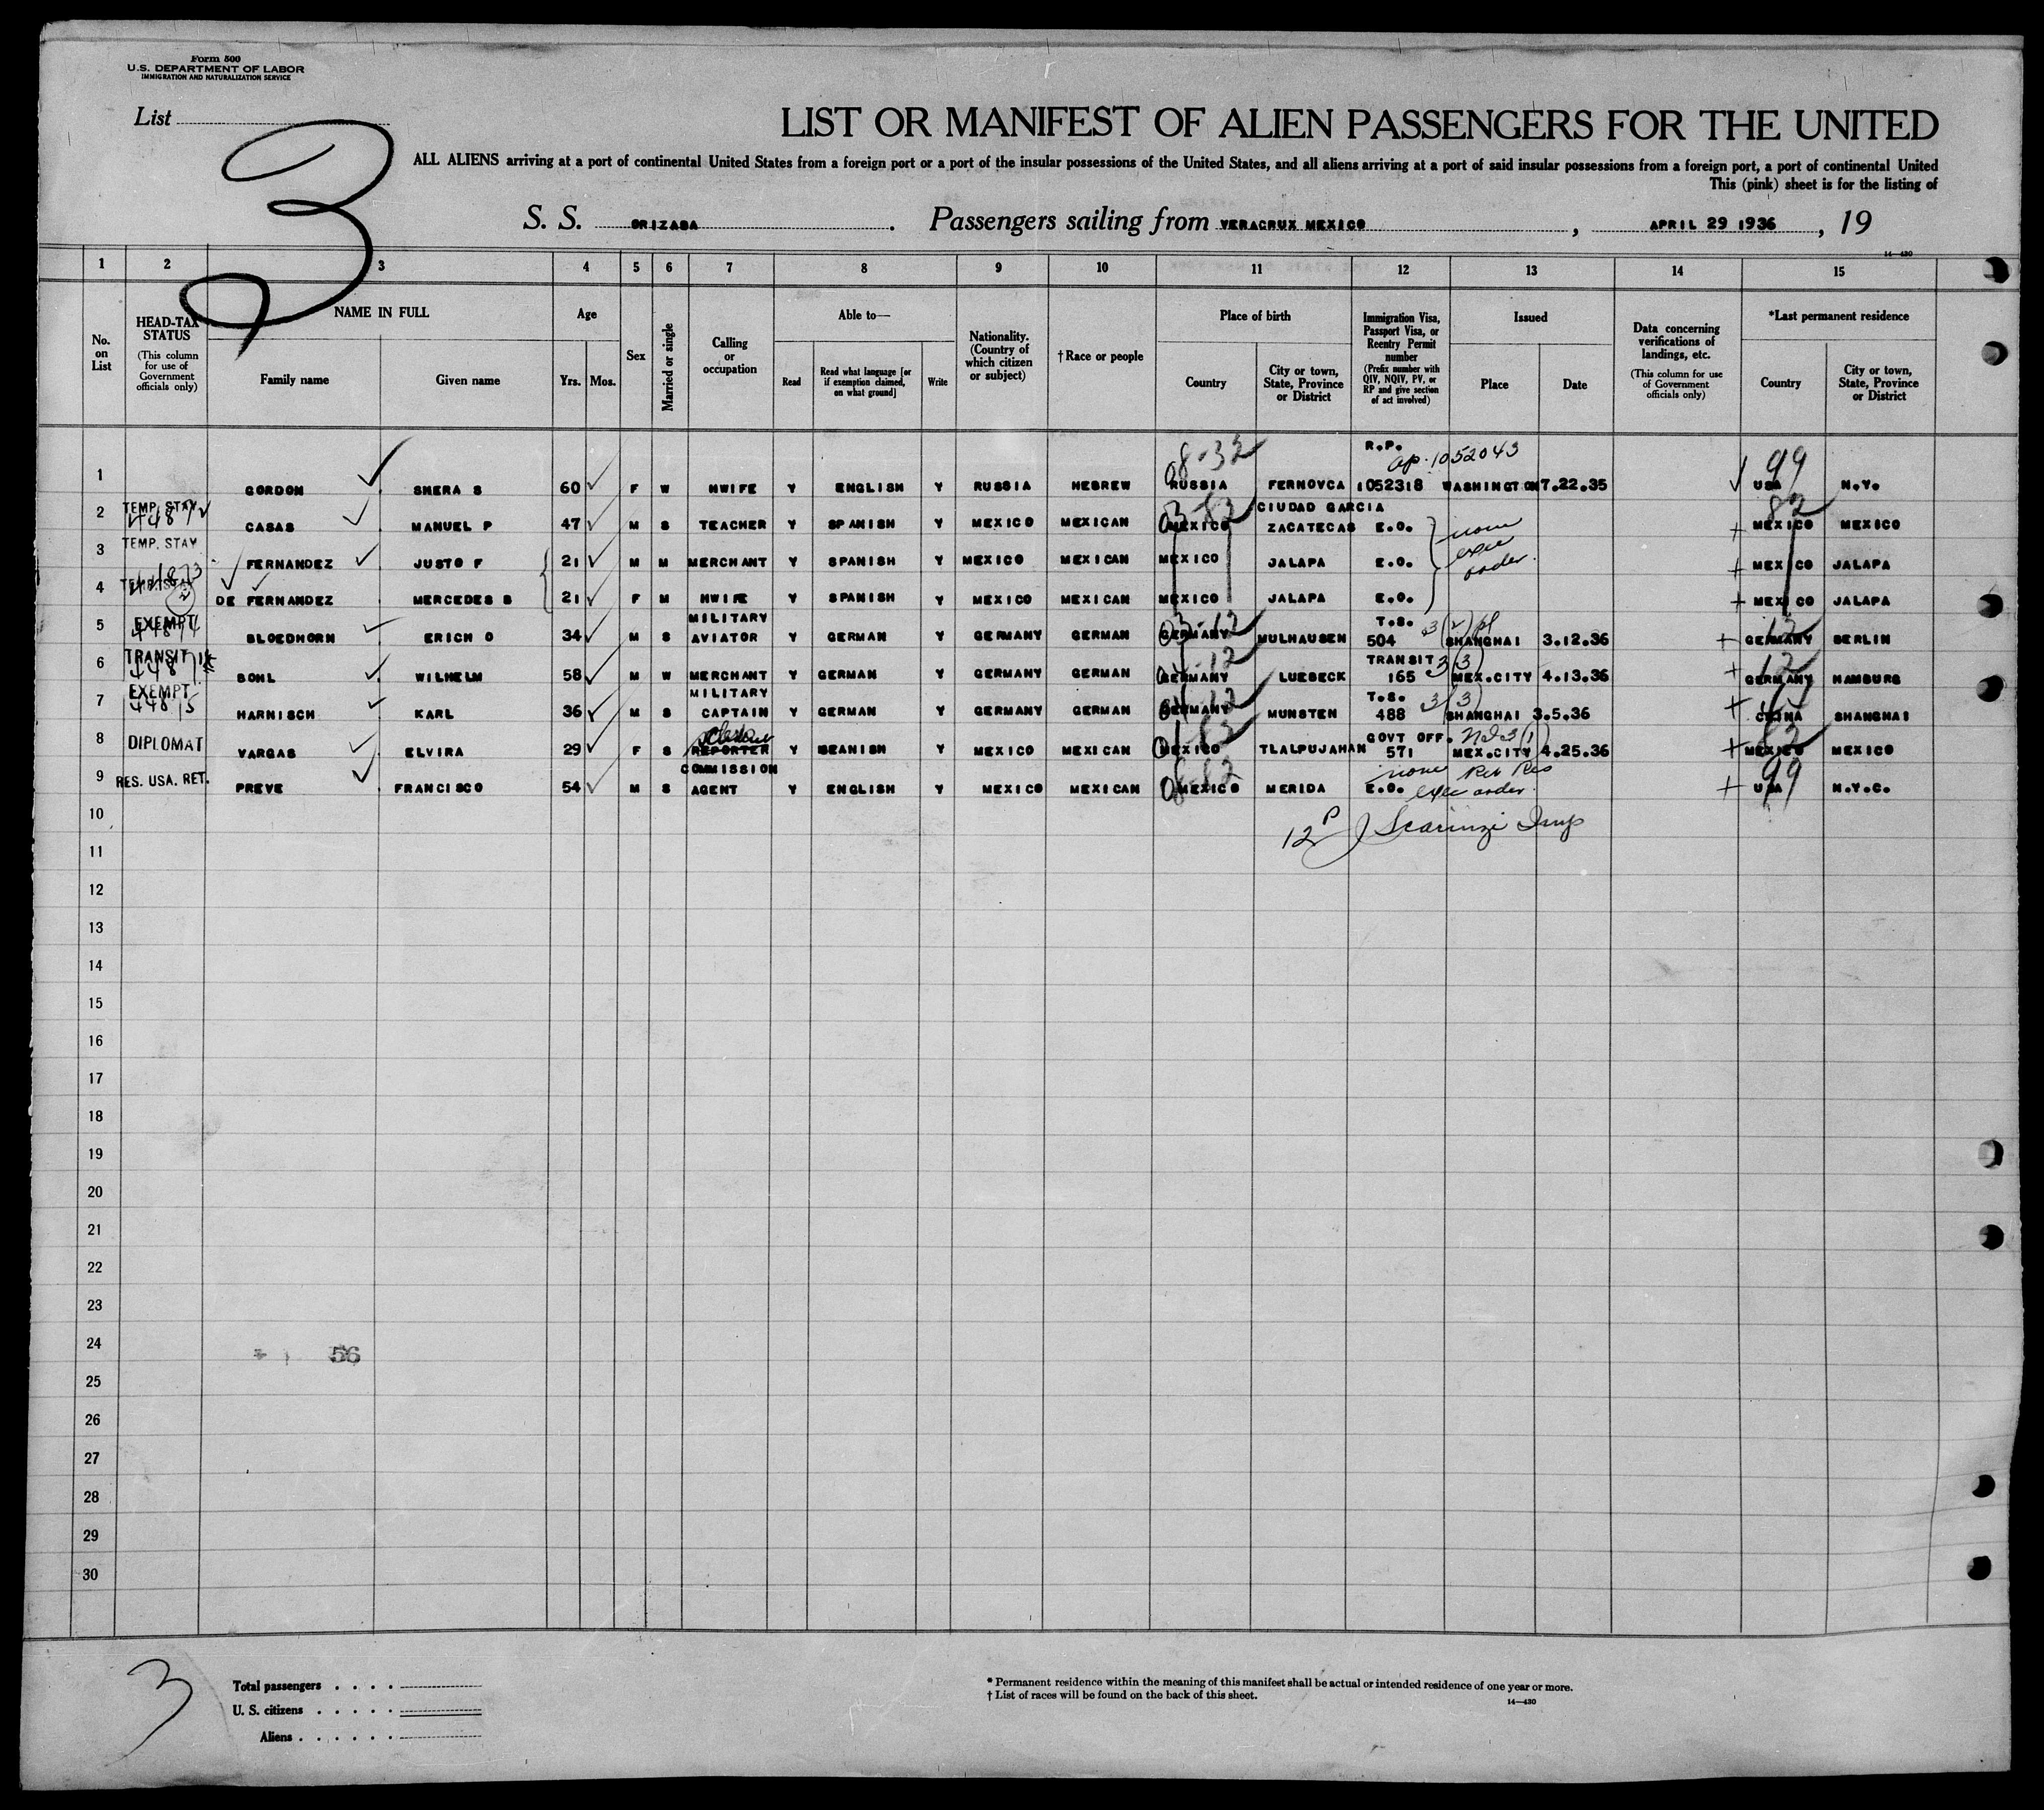 Form 500
U.S. DEPARTMENT OF LABOR
IMMIGRATION AND NATURALIZATION SERVICE
List
3
LIST OR MANIFEST OF ALIEN PASSENGERS FOR THE UNITED
ALL ALIENS arriving at a port of continental United States from a foreign port or a port of the insular possessions of the United States, and all aliens arriving at a port of said insular possessions from a foreign port, a port of continental United
This (pink) sheet is for the listing of
S. S. ORIZABA. Passengers sailing from VERACRUX MEXICO, APRIL 29 1936, 19
14—430
1 2 3 4 5 6 7 8 9 10 11 12 13 14 15
No. on List
HEAD-TAX STATUS
(This column for use of Government officials only)
NAME IN FULL
Family name
Given name
Age
Yrs. Mos.
Sex
Married or single
Calling or occupation
Able to—
Read
Read what language [or if exemption claimed, on what ground]
Write
Nationality. (Country of which citizen or subject)
†Race or people
Place of birth
Country
City or town, State, Province or District
Immigration Visa, Passport Visa, or Reentry Permit number
(Prefix number with QIV, NQIV, PV, or RP and give section of act involved)
Issued
Place
Date
Data concerning verifications of landings, etc.
(This column for use of Government officials only)
*Last permanent residence
Country
City or town, State, Province or District
8-32 R.P. ap. 1052043 99
1 GORDON SHERA S 60 F W HWIFE Y ENGLISH Y RUSSIA HEBREW RUSSIA FERNOVCA 1052318 WASHINGTON 7.22.35 USA N.Y.
TEMP. STAY 3-82 CIUDAD GARCIA 82
2 CASAS MANUEL P 47 M S TEACHER Y SPANISH Y MEXICO MEXICAN MEXICO ZACATECAS E.O. none MEXICO MEXICO
TEMP. STAY exec
3 FERNANDEZ JUSTO F 21 M M MERCHANT Y SPANISH Y MEXICO MEXICAN MEXICO JALAPA E.O. order MEXICO JALAPA
4 DE FERNANDEZ MERCEDES B 21 F M HWIFE Y SPANISH Y MEXICO MEXICAN MEXICO JALAPA E.O. MEXICO JALAPA
EXEMPT MILITARY 3-12 T.S. 3(2) 12
5 BLOEDHORN ERICH O 34 M S AVIATOR Y GERMAN Y GERMANY GERMAN GERMANY MULHAUSEN 504 SHANGHAI 3.12.36 GERMANY BERLIN
TRANSIT TRANSIT 3(3) 12
6 BOHL WILHELM 58 M W MERCHANT Y GERMAN Y GERMANY GERMAN GERMANY LUEBECK 165 MEX.CITY 4.13.36 GERMANY HAMBURG
EXEMPT MILITARY T.S. 3(3)
7 HARNISCH KARL 36 M S CAPTAIN Y GERMAN Y GERMANY GERMAN GERMANY MUNSTEN 488 SHANGHAI 3.5.36 CHINA SHANGHAI
DIPLOMAT GOVT OFF. 3(1) 82
8 VARGAS ELVIRA 29 F S REPORTER Y SEANISH Y MEXICO MEXICAN MEXICO TLALPUJAHAN 571 MEX.CITY 4.25.36 MEXICO MEXICO
RES. USA. RET. COMMISSION 8-82 none 99
9 PREVE FRANCISCO 54 M S AGENT Y ENGLISH Y MEXICO MEXICAN MEXICO MERIDA E.O. exec order USA N.Y.C.
10
12 P J Scarinzi Insp
11
12
13
14
15
16
17
18
19
20
21
22
23
24
56
25
26
27
28
29
30
3
Total passengers . . . .
U. S. citizens . . . . .
Aliens . . . . . .
* Permanent residence within the meaning of this manifest shall be actual or intended residence of one year or more.
† List of races will be found on the back of this sheet.
14—430